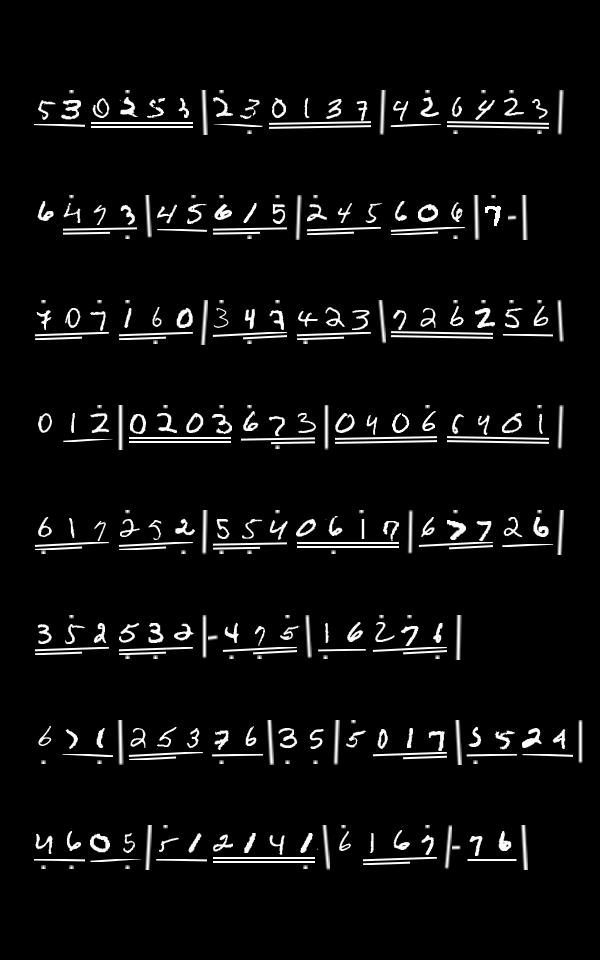 530253|230137|426423
6473|45615|245606|7-
707160|347423|726256
012|0203673|04066401
617252|5540617|67726
352532|-475|16271
671|25376|35|5017|5524
4605|512141|6167|-76